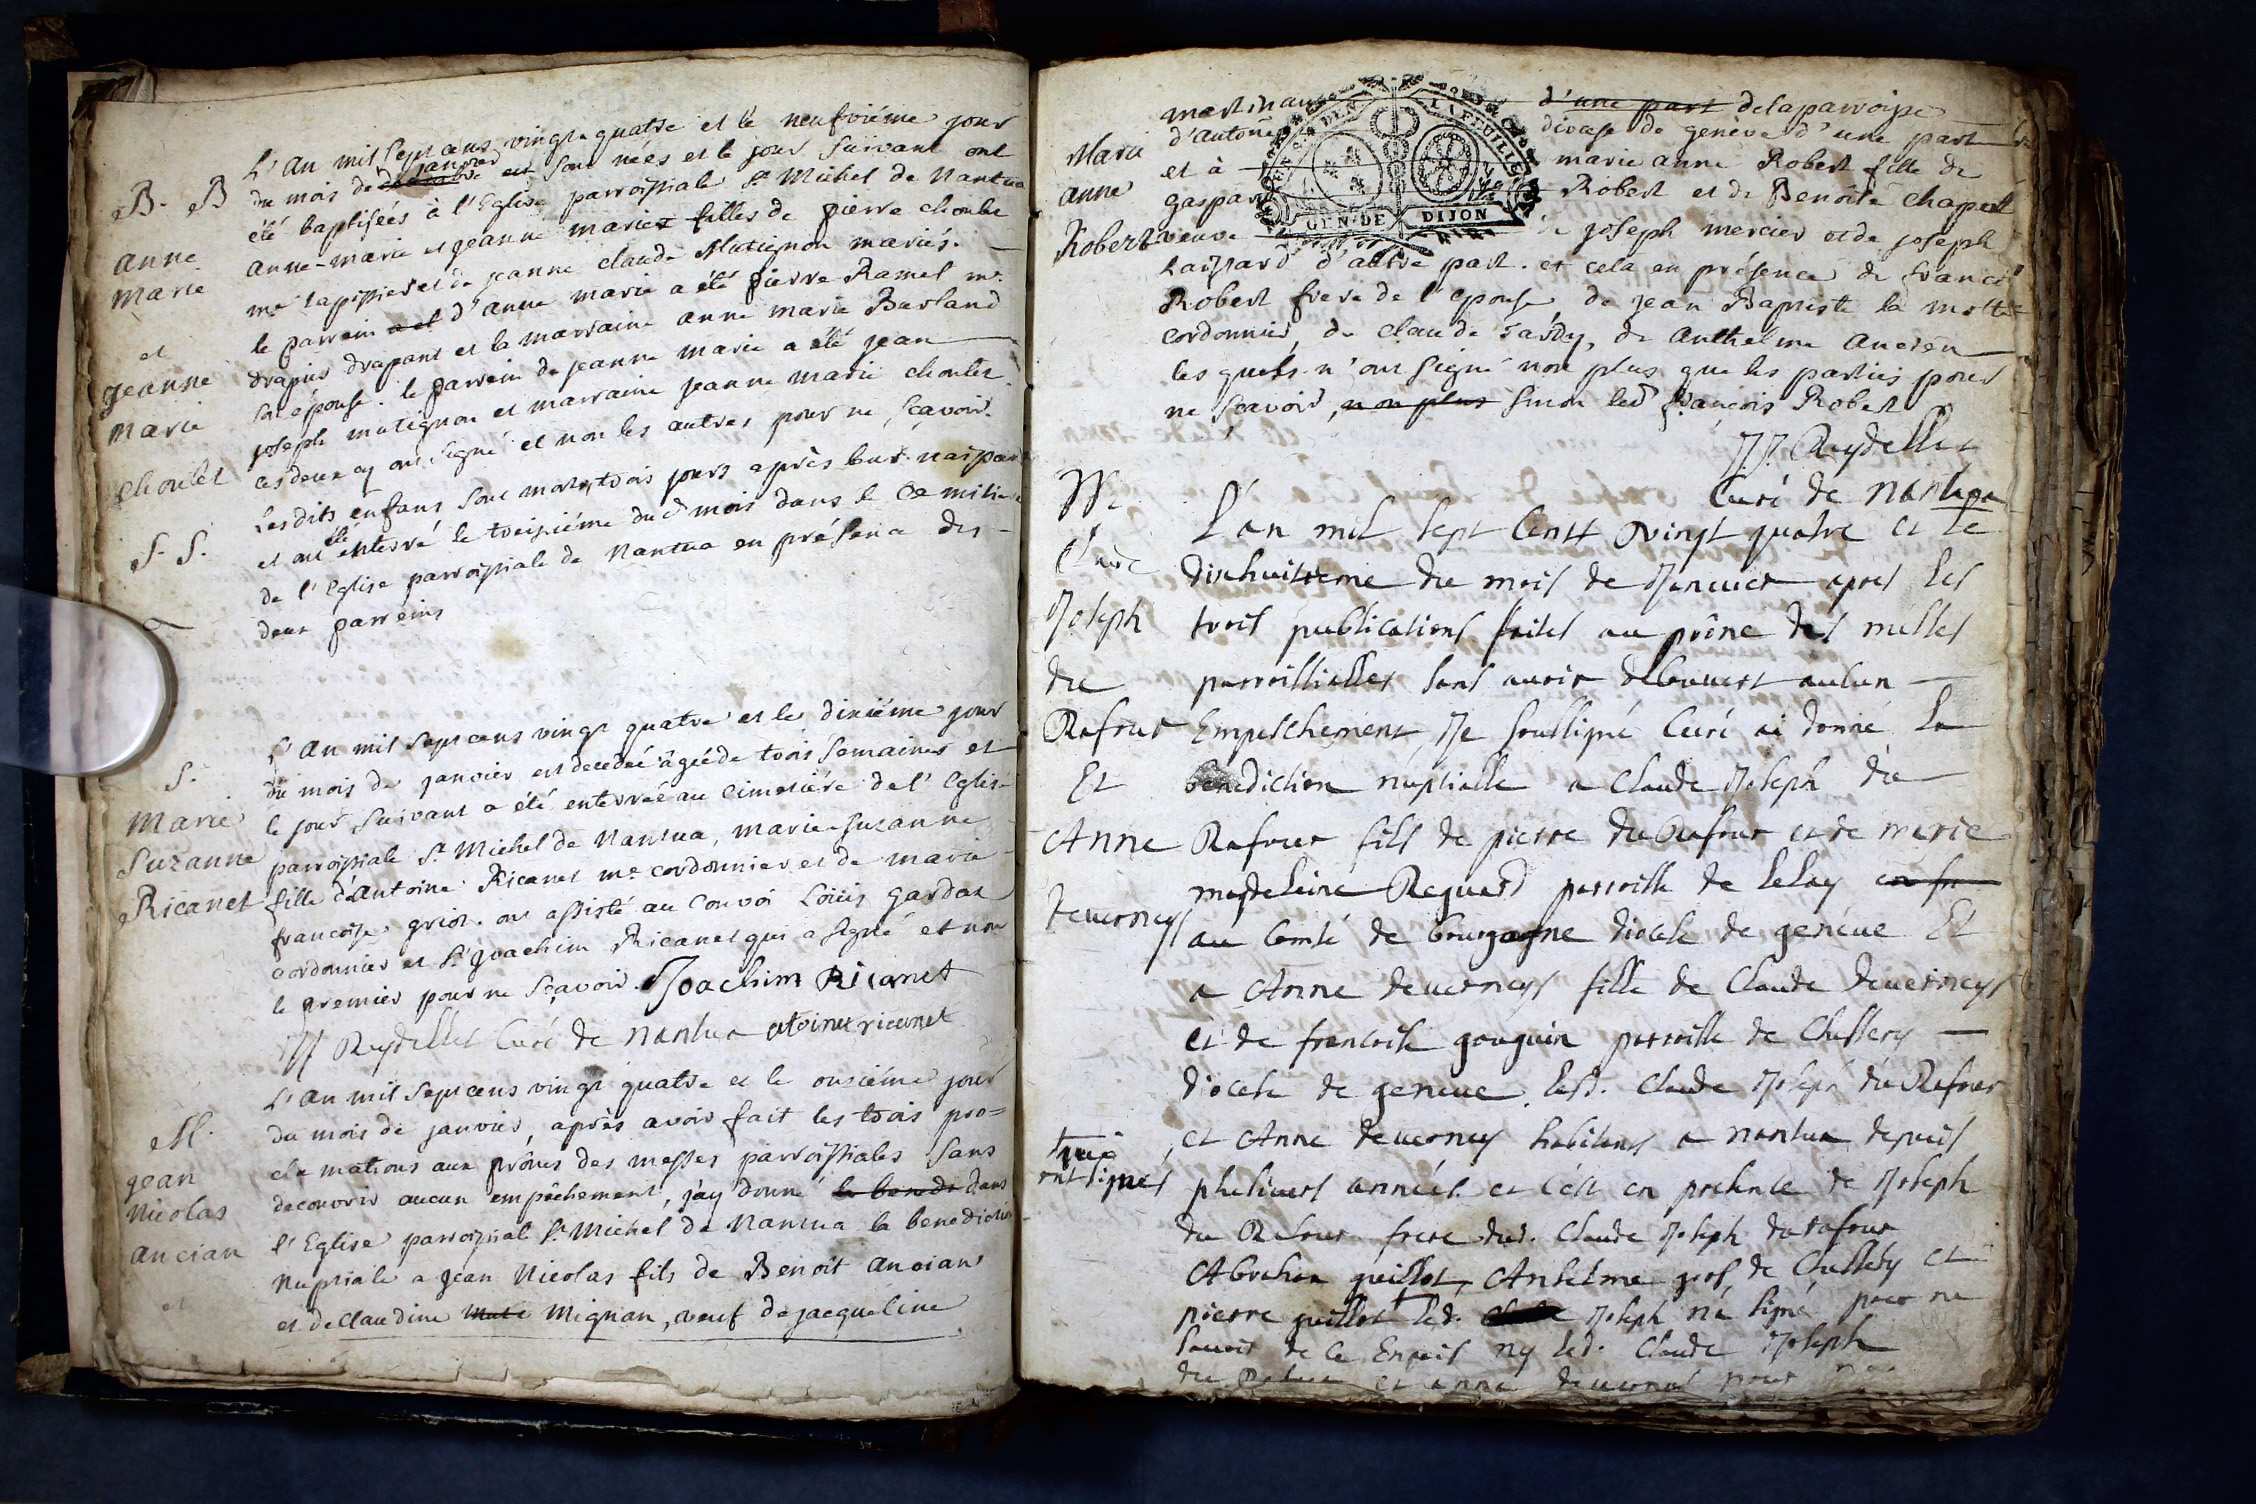 B. B
anne
marie
et
jeanne
marie
choulet
S. S.
L'an mil sept cens vingt quatre et le neufviéme jour
du mois de janvier sont nées et le jour suivant ont
été baptisées à l'Eglise parroissiale St Michel de Nantua
anne-marie et jeanne marie filles de pierre choulet
me tapissier et de jeanne claude Matignon mariés.
le parrein d'anne marie a été pierre Ramel me
drapier drapant et la marraine anne marie Burland
son epouse. le parrein de jeanne marie a été jean
joseph matignon et marraine jeanne marie choulet
ces deux cy ont signé et non les autres pour ne sçavoir.
Lesdits enfans sont morts trois jours après leur
et ont été enterré le treisiéme dud mois dans le
de l'Eglise parroissiale de Nantua en présence des
deux parreins
S.
Marie
Suzanne
Ricanet
L'an mil sept cens vingt quatre et le dixiéme jour
du mois de janvier est decedée âgée de trois semaines et
le jour suivant a été enterrée au cimetiére de l'Eglise
parroissiale St Michel de Nantua, marie suzanne
fille d'antoine Ricanet me cordonnier et de marie
francoise griot. ont assisté au convoi Loüis gardaz
cordonnier et Sr joachim Ricanet qui a signé et non
le premier pour ne sçavoir. Joachim Ricanet
JJ Reydellet Curé de nantua atoine ricanet
M.
jean
Nicolas
ancian
et
L'an mil sept cens vingt quatre et le onsiéme jour
du mois de janvier, après avoir fait les trois pro=
clamations aux prônes des messes parroissiales sans
decouvrir aucun empêchement, j'ay donné la bened dans
l'Eglise parroissiale St Michel de Nantua la benediction
nuptiale a jean Nicolas fils de Benoit ancian
et de claudine Mignan, veuf de jacqueline
Marie
anne
Robert
d'une part de la parroisse
d'antoine diocese de genève d'une part
et à marie anne Robert fille de
gaspard Robert et de Benoite chapel
veuve de joseph mercier et de joseph
d'autre part. et cela en présence de francois
Robert frere de l'epouse de jean Baptiste la motte
cordonnier, de claude Tardy, de anthelme ancien
les quels n'ont signé non plus que les parties pour
ne sçavoir, non plus sinon led françois Robert
JJ. Reydellet
Curé de nantua
Me
Claude
Joseph
du
Rafour
Et
Anne
deuerneys
L'an mil sept Cent vingt quatre et le
dixhuitieme du mois de Januier apres les
trois publications faites au prône des messes
parroissialles sans auoir decouuert aulcun
Empeschement Je soussigné Curé ai donné la
benediction nuptialle a Claude Joseph du
Rafour fils de pierre du Rafour et de marie
magdeleine Reguard parroisse de Lelay
au Comté de bourgogne diocese de geneue Et
a Anne deuerneys fille de Claude deuerneys
et de francoise gouguin parroisse de Chessery
diocese de geneue. lesd. Claude Joseph du Rafour
et Anne deuerneys habitans a nantua depuis
plusieurs années. et c'est en presence de Joseph
du Rafour frere dud. Claude Joseph du rafour
Abraham guillot, Anselme gros de Chessery et
pierre guillot led. Joseph n'a signé pour ne
sauoir de Ce Enquis ny led. Claude Joseph
du Rafour et anne deuerneys pour
qui
ont signés
GEN. DE DIJON